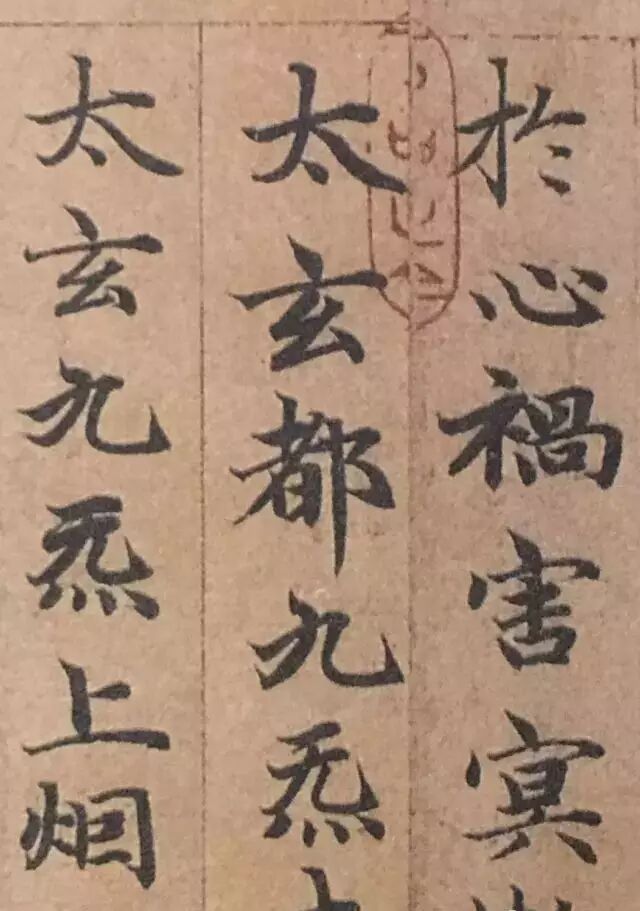 於心禍害冥
太玄都九炁
太玄九炁上烟